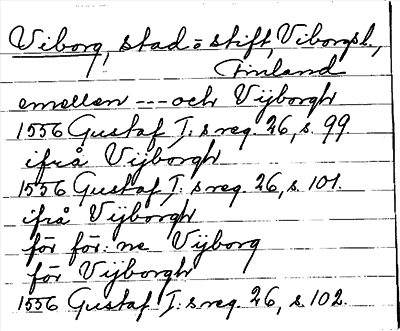 Viborg, stad o stift, Viborgsl.,
Finland
emellan --- och Vijborgh
1556 Gustaf I: s reg. 26, s. 99.
ifrå Vijborgh
1556 Gustaf I: s reg. 26, s. 101.
ifrå Vijborgh
för för: ne Vijborg
för Vijborgh
1556 Gustaf I: s reg. 26, s. 102.